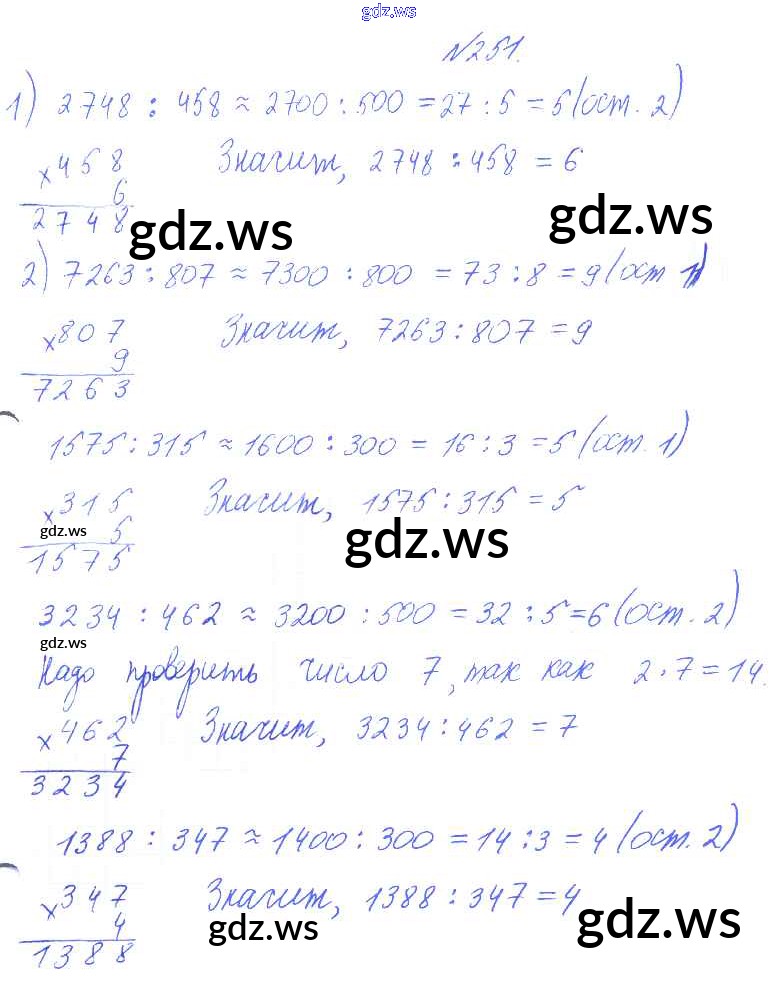 gdz.ws
№251.
1) 2748 : 458 ≈ 2700 : 500 = 27 : 5 = 5 (ост. 2)
×458 Значит, 2748 : 458 = 6
6
2748 gdz.ws gdz.ws
2) 7263 : 807 ≈ 7300 : 800 = 73 : 8 = 9 (ост 1)
×807 Значит, 7263 : 807 = 9
9
7263
1575 : 315 ≈ 1600 : 300 = 16 : 3 = 5 (ост. 1)
×315 Значит, 1575 : 315 = 5
gdz.ws 5 gdz.ws
1575
3234 : 462 ≈ 3200 : 500 = 32 : 5 = 6 (ост. 2)
gdz.ws
Надо проверить число 7, так как 2 · 7 = 14.
×462 Значит, 3234 : 462 = 7
7
3234
1388 : 347 ≈ 1400 : 300 = 14 : 3 = 4 (ост. 2)
×347 Значит, 1388 : 347 = 4
4 gdz.ws gdz.ws
1388